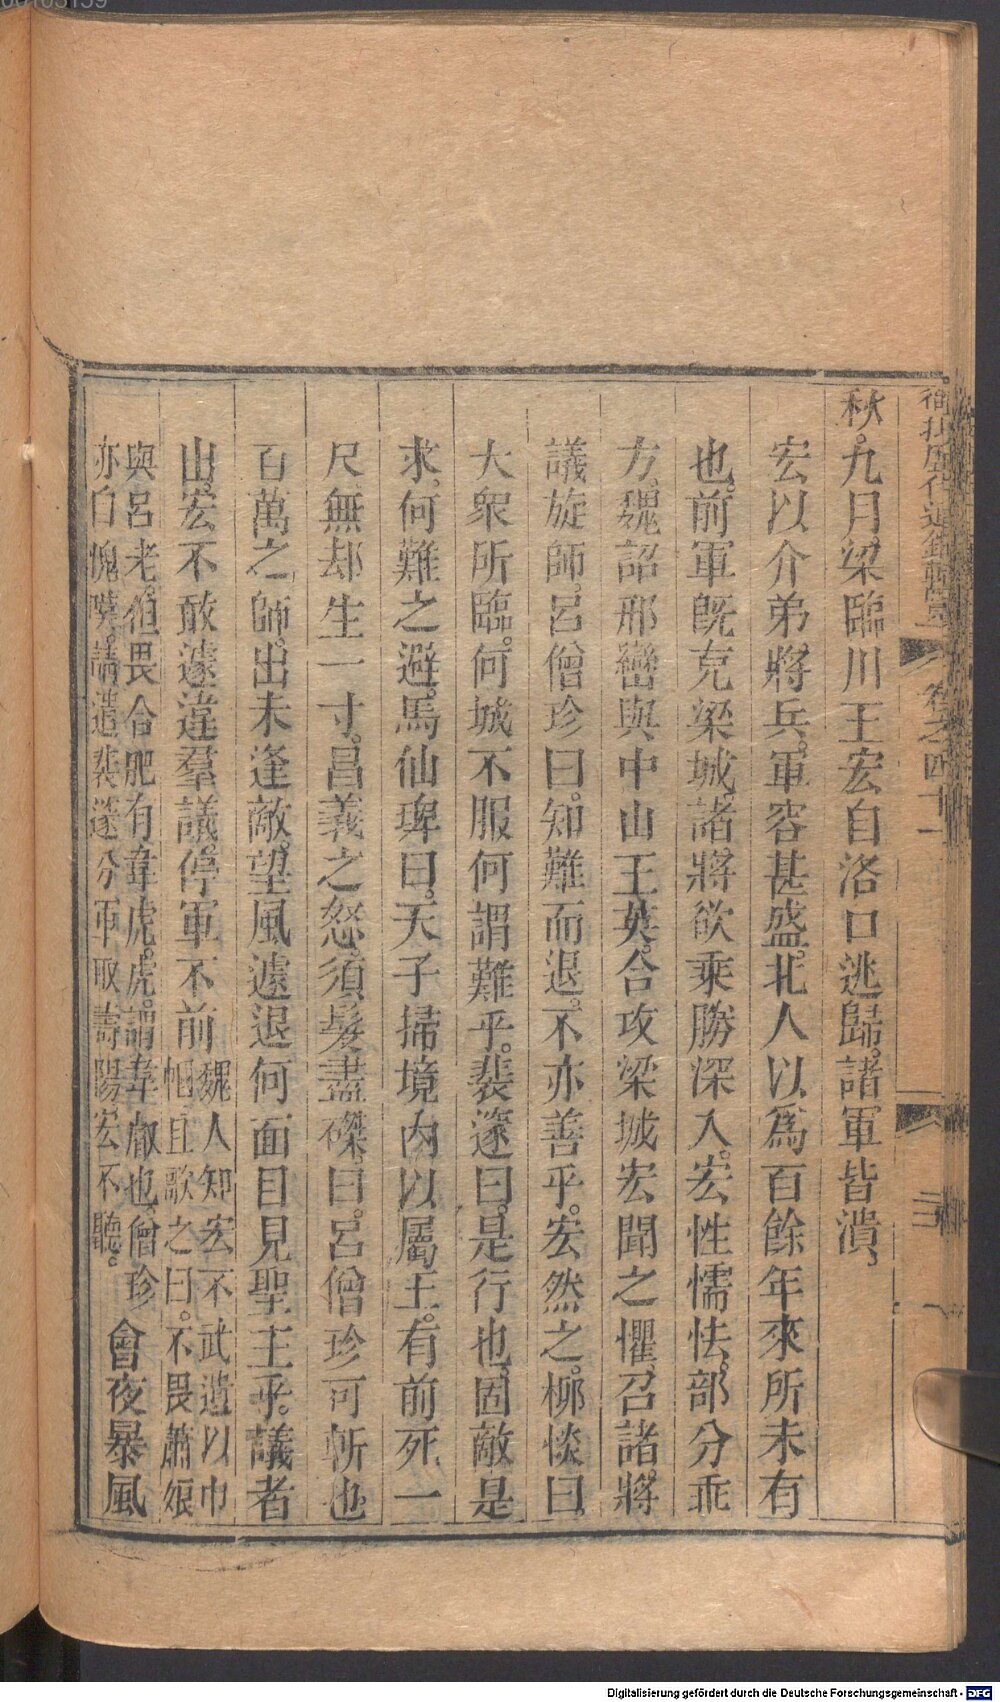 秋。九月。梁臨川王宏自洛口逃歸。諸軍皆潰。
宏以介弟將兵。軍容甚盛。北人以爲百餘年來所未有
也。前軍既克梁城。諸將欲乘勝深入。宏性懦怯。部分乖
方。魏詔邢巒與中山王英。合攻梁城。宏聞之懼。召諸將
議旋師。呂僧珍曰。知難而退。不亦善乎。宏然之。柳惔曰。
大衆所臨。何城不服。何謂難乎。裴邃曰。是行也。固敵是
求。何難之避。馬仙琕曰。天子掃境內以屬王。有前死一
尺。無却生一寸。昌義之怒。須髮盡磔。曰。呂僧珍可斬也。
百萬之師。出未逢敵。望風遽退。何面目見聖主乎。議者
山。宏不敢遽違羣議。停軍不前
魏人知宏不武。遺以巾
幗。且歌之曰。不畏蕭娘
與呂老。但畏合肥有韋虎。虎。謂韋叡也。僧珍
亦自愧嘆。請遣裴邃分軍取壽陽。宏不聽。
會夜暴風
御批歷代通鑑輯覽 卷之四十一
三
Digitalisierung gefördert durch die Deutsche Forschungsgemeinschaft - DFG